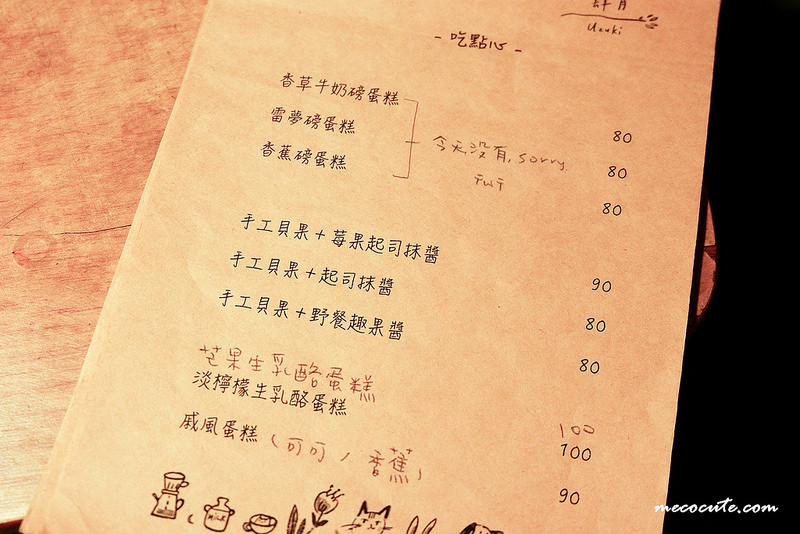 肆月
uzuki
- 吃點心 -
香草牛奶磅蛋糕 80
雷夢磅蛋糕 80
香蕉磅蛋糕 80
今天沒有, sorry.
TWT
手工貝果+莓果起司抹醬 90
手工貝果+起司抹醬 80
手工貝果+野餐趣果醬 80
芒果生乳酪蛋糕 100
淡檸檬生乳酪蛋糕 100
戚風蛋糕 (可可 / 香蕉) 90
MILK
mecocute.com